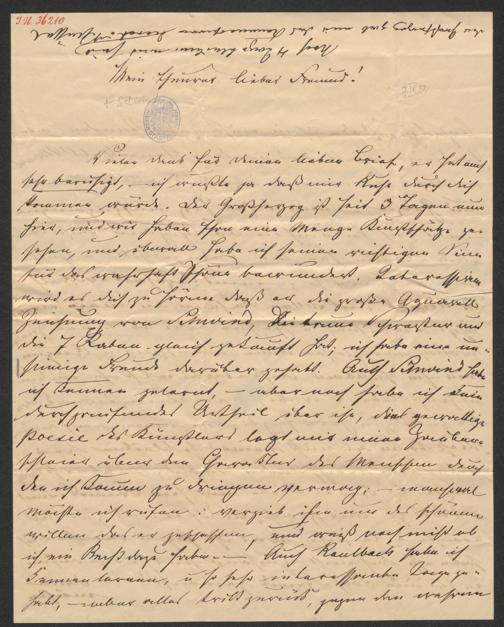 I.N. 36210
Mein theurer lieber Freund!
Vielen Dank für Deinen lieben Brief, er hat mich
sehr beruhigt, – ich wußte ja daß mir Ruhe durch dich
kommen würde. Der Großherzog ist seit 3 Tagen nun
hier, und wir haben schon eine Menge Kunstschätze ge-
sehen, und überall habe ich seinen richtigen Sinn
für das wahrhaft Schöne bewundert. Interessiren
wird es dich zu hören daß er die große Aquarell
Zeichnung von Schwind, die treue Schwester und
die 7 Raben gleich gekauft hat, ich habe eine un-
sinnige Freude darüber gehabt. Auch Schwind habe
ich kennen gelernt, – aber noch habe ich kein
durchgreifendes Urtheil über ihn, diese gewaltige
Poesie des Künstlers legt mir einen Zauber-
schleier über den Charakter des Menschen durch
den ich kaum zu dringen vermag; – manchmal
möchte ich rufen: verzeih ihm um des schönen
willen das er geschaffen, und weiß noch nicht ob
ich ein Recht dazu habe. – Auch Kaulbach habe ich
kennenlernen, u so sehr interessante Tage ge-
habt, – aber alles tritt zurück, gegen den wahren